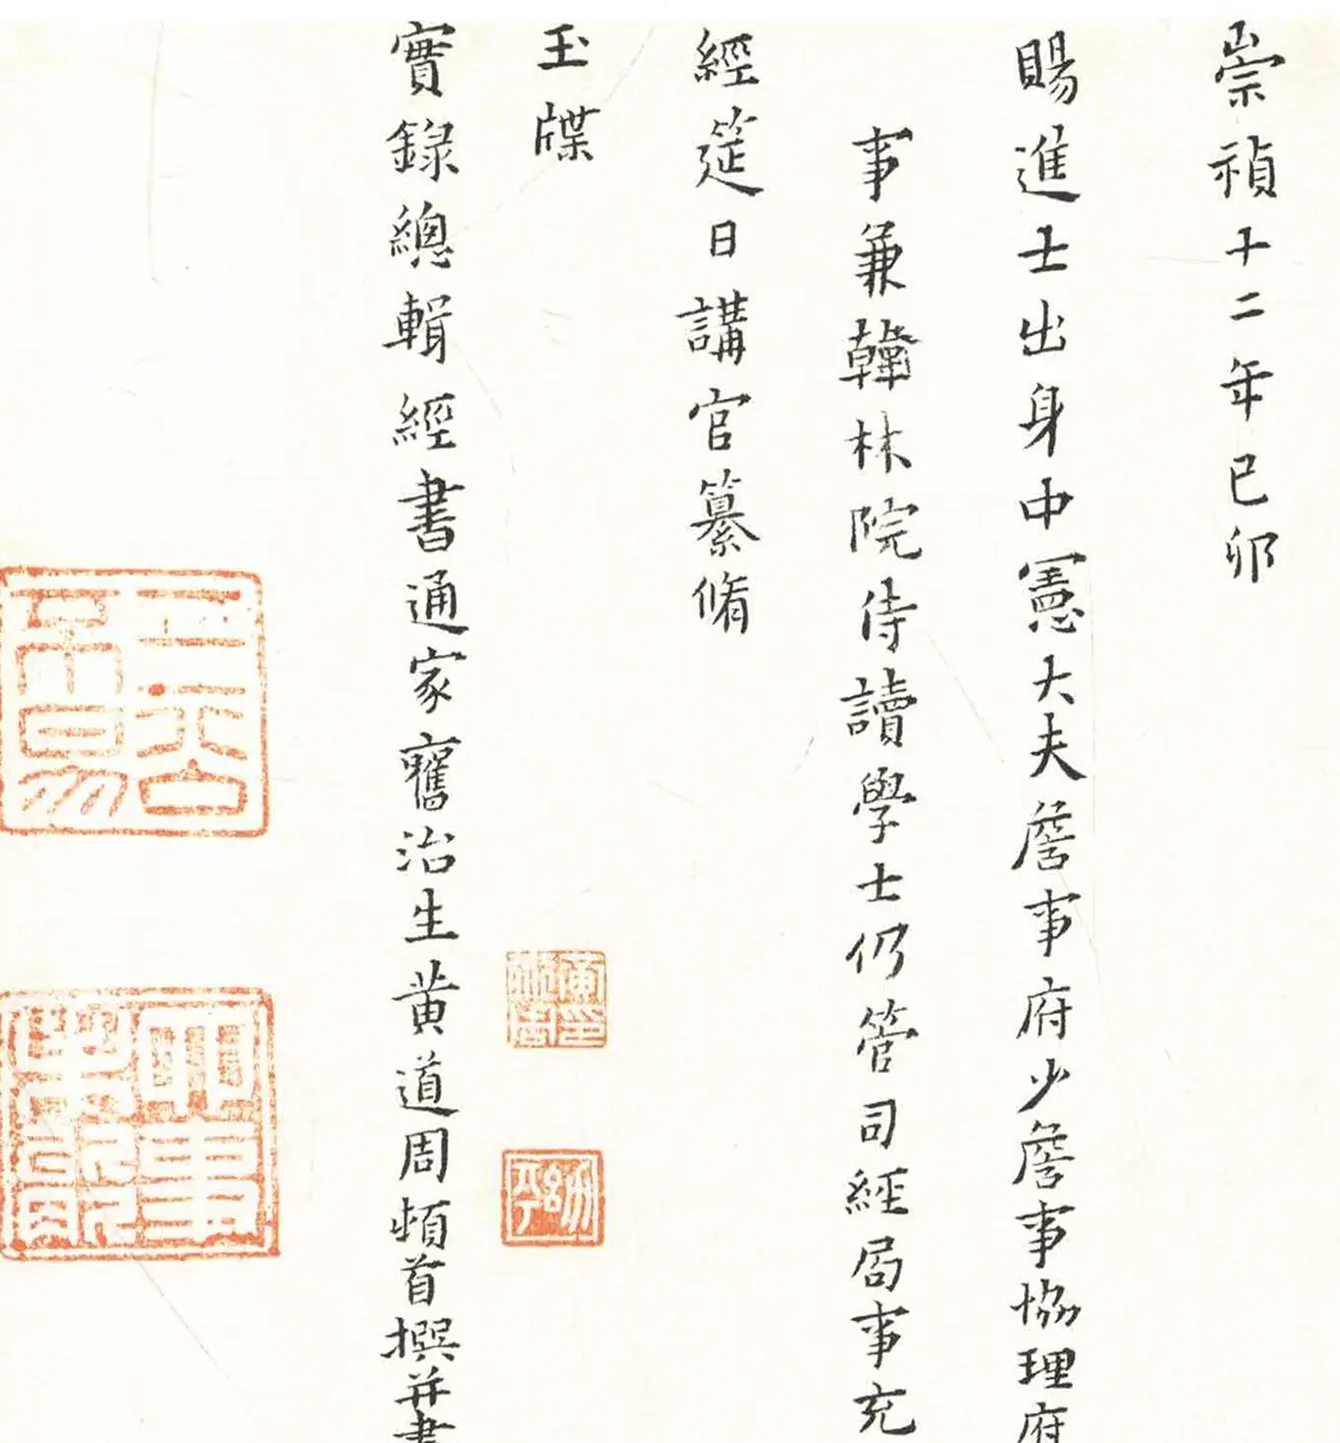 崇禎十二年己卯
賜進士出身中憲大夫詹事府少詹事協理府
事兼翰林院侍讀學士仍管司經局事充
經筵日講官纂脩
玉牒
實錄總輯經書通家舊治生黄道周頓首撰并書
黄道周印
幼平